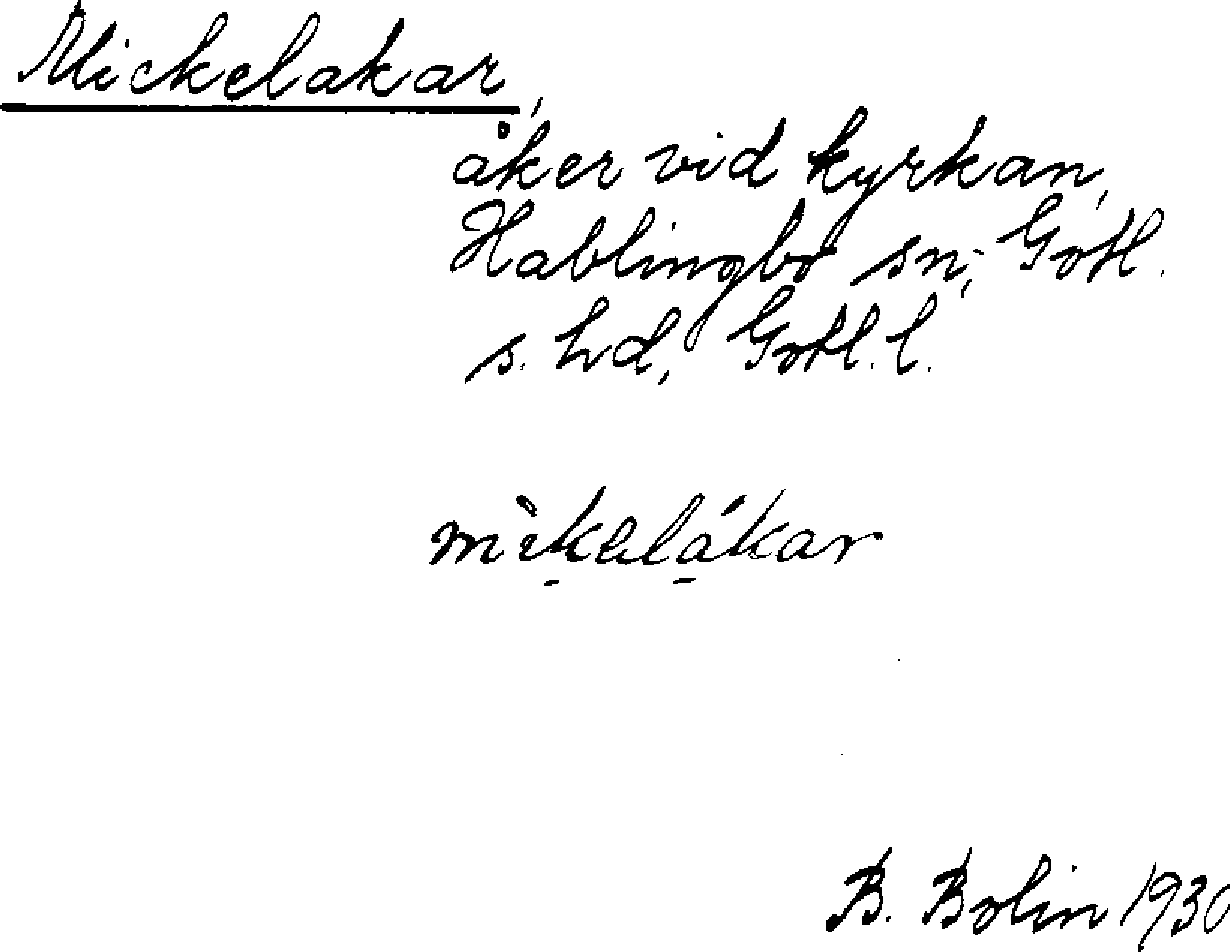 Mickelakar,
åker vid kyrkan,
Hablingbo sn, Gotl.
s. hd, Gotl. l.
mìkelákar
B. Bolin 1930